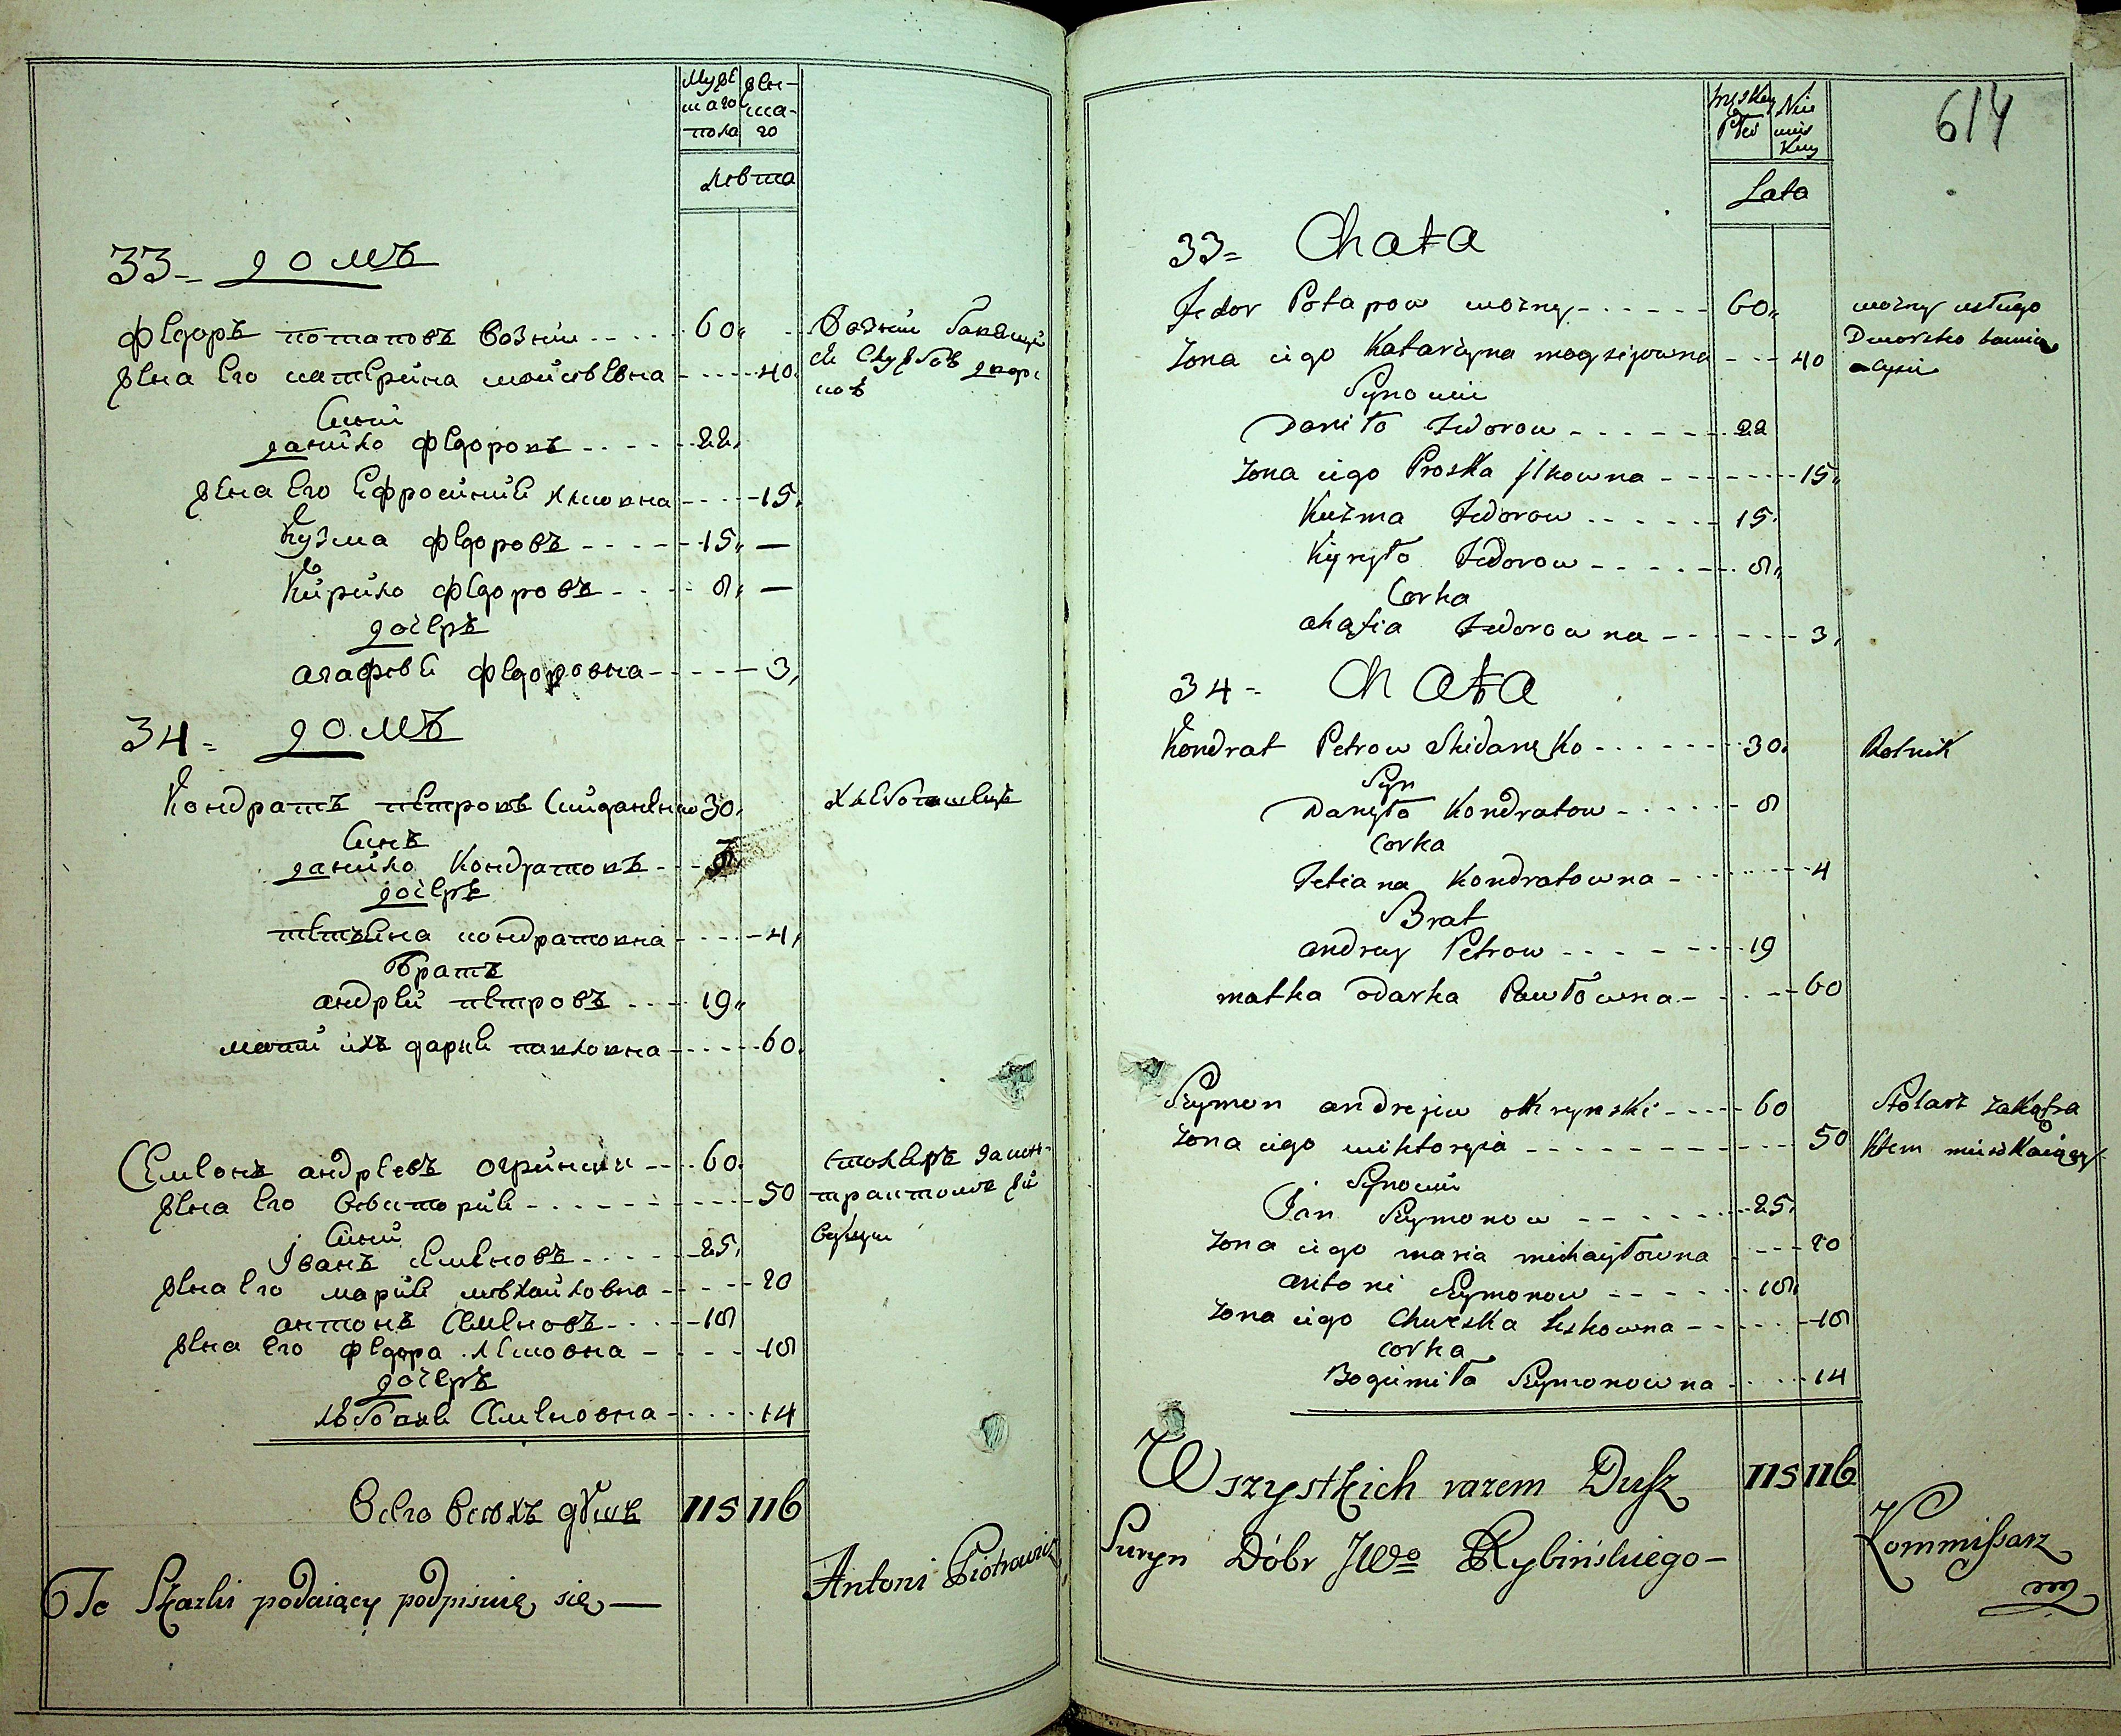 Муже
шаго
пола
жен-
ша-
го
Лѣта
33 - домъ
Федоръ Потаповъ возни 60
жена его Катерина Мойсѣевна 40
Возни бавящи
ся службов дворс
коѣ
Сини
Данило Федоровъ 22
жена его Ефросинiя Илковна 15
Кузма Федоровъ 15 —
Кирило Федоровъ 8 —
дочеръ
Агафѣя Федоровна 3
34 = домъ
Кондратъ Петровъ Скиданенко 30
Хлебопашецъ
Синъ
Данило Кондратовъ 8
дочеръ
Тетѣяна Кондратовна 4
Братъ
Андрей Петровъ 19
мати ихъ Дарiя Павловна 60
Семионъ Андреевъ Огрински 60
Столяръ за кон-
жена его Викторiя 50
трактомъ жи
Сини
вущи
Іванъ Семеновъ 25
жена его Марiя Михайловна 20
Антонъ Семеновъ 18
жена его Федора Лесковна 18
дочеръ
Семеновна 14
Всего всѣхъ душъ 115 116
Te Skazki podaiący podpisuię się —
Antoni Piotrowicz
614
męskey
Płci
Nie
wies
key
Lata
33 = Chata
Fedor Potapow wozny 60
wozny usługo
Żona iego Katarzyna Moyzijowna 40
Dworsko bawią
cysie
Synowie
Daniło Fedorow 22
Żona iego Proska Jlkowna 15
Kuźma Fedorow 15
Kyryło Fedorow 8
Corka
Ahafia Fedorowna 3
34 = Chata
Kondrat Petrow Skidanęko 30
Rolnik
Syn
Danyło Kondratow 8
Corka
Tetiana Kondratowna 4
Brat
Andrey Petrow 19
matka Odarka Pawłowna 60
Szymon Andrejew Ohrynski 60
Stolarz za Kątra
Żona iego Wiktorya 50
ktem mieszkaiący
Synowie
Jan Szymonow 25
Żona iego Maria Michayłowna 20
Antoni Szymonow 18
Żona iego Chweśka Leskowna 18
Corka
Bogumiła Szymonowna 14
Wszystkich razem Dusz 115 116
Suryn Dóbr JWo Rybińskiego —
Kommissarz
mp